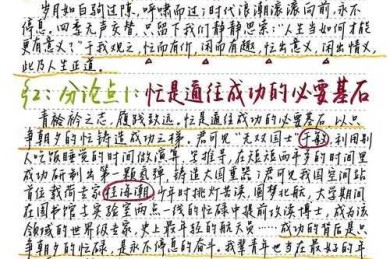 岁月如白驹过隙，呼啸而过；时代浪潮滚滚向前，永不
停息。四季无声交替，只留下我们静静思索："人生当如何才能
更有意义？"于我观之，忙而有价，闲而有趣，忙出意义，闲出情义，
此乃人生正道。
分论点1：忙是通往成功的必要基石
青龄韵之志，履践致远。忙是通往成功的必要基石，以只
争朝夕的忙铸造成功之梯。君可见"无双国士"于敏，利用别
人吃饭睡觉的时间做演算，写推导，在短短两年多的时间里
成功研制出第一颗氢弹，铸造大国重器；君可见我国空间站
首位载荷专家桂海潮少年时挑灯苦读，圆梦北航，大学期间
在图书馆与实验室两点一线的忙碌中提前攻读博士，成为该
领域的世界级专家，史上最年轻的航天员……成功的背后是只
争朝夕的忙碌，是永不停息的奋斗。我辈青年也当在最好的年